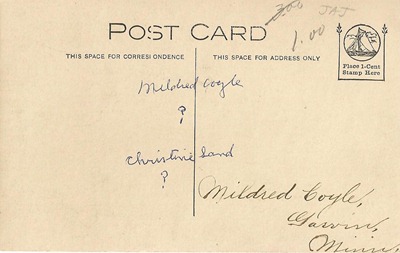 POST CARD
THIS SPACE FOR CORRESPONDENCE
THIS SPACE FOR ADDRESS ONLY
300 JAJ
1.00
Place 1-Cent
Stamp Here
Mildred Coyle
?
Christine Sand
?
Mildred Coyle,
Garvin,
Minn.